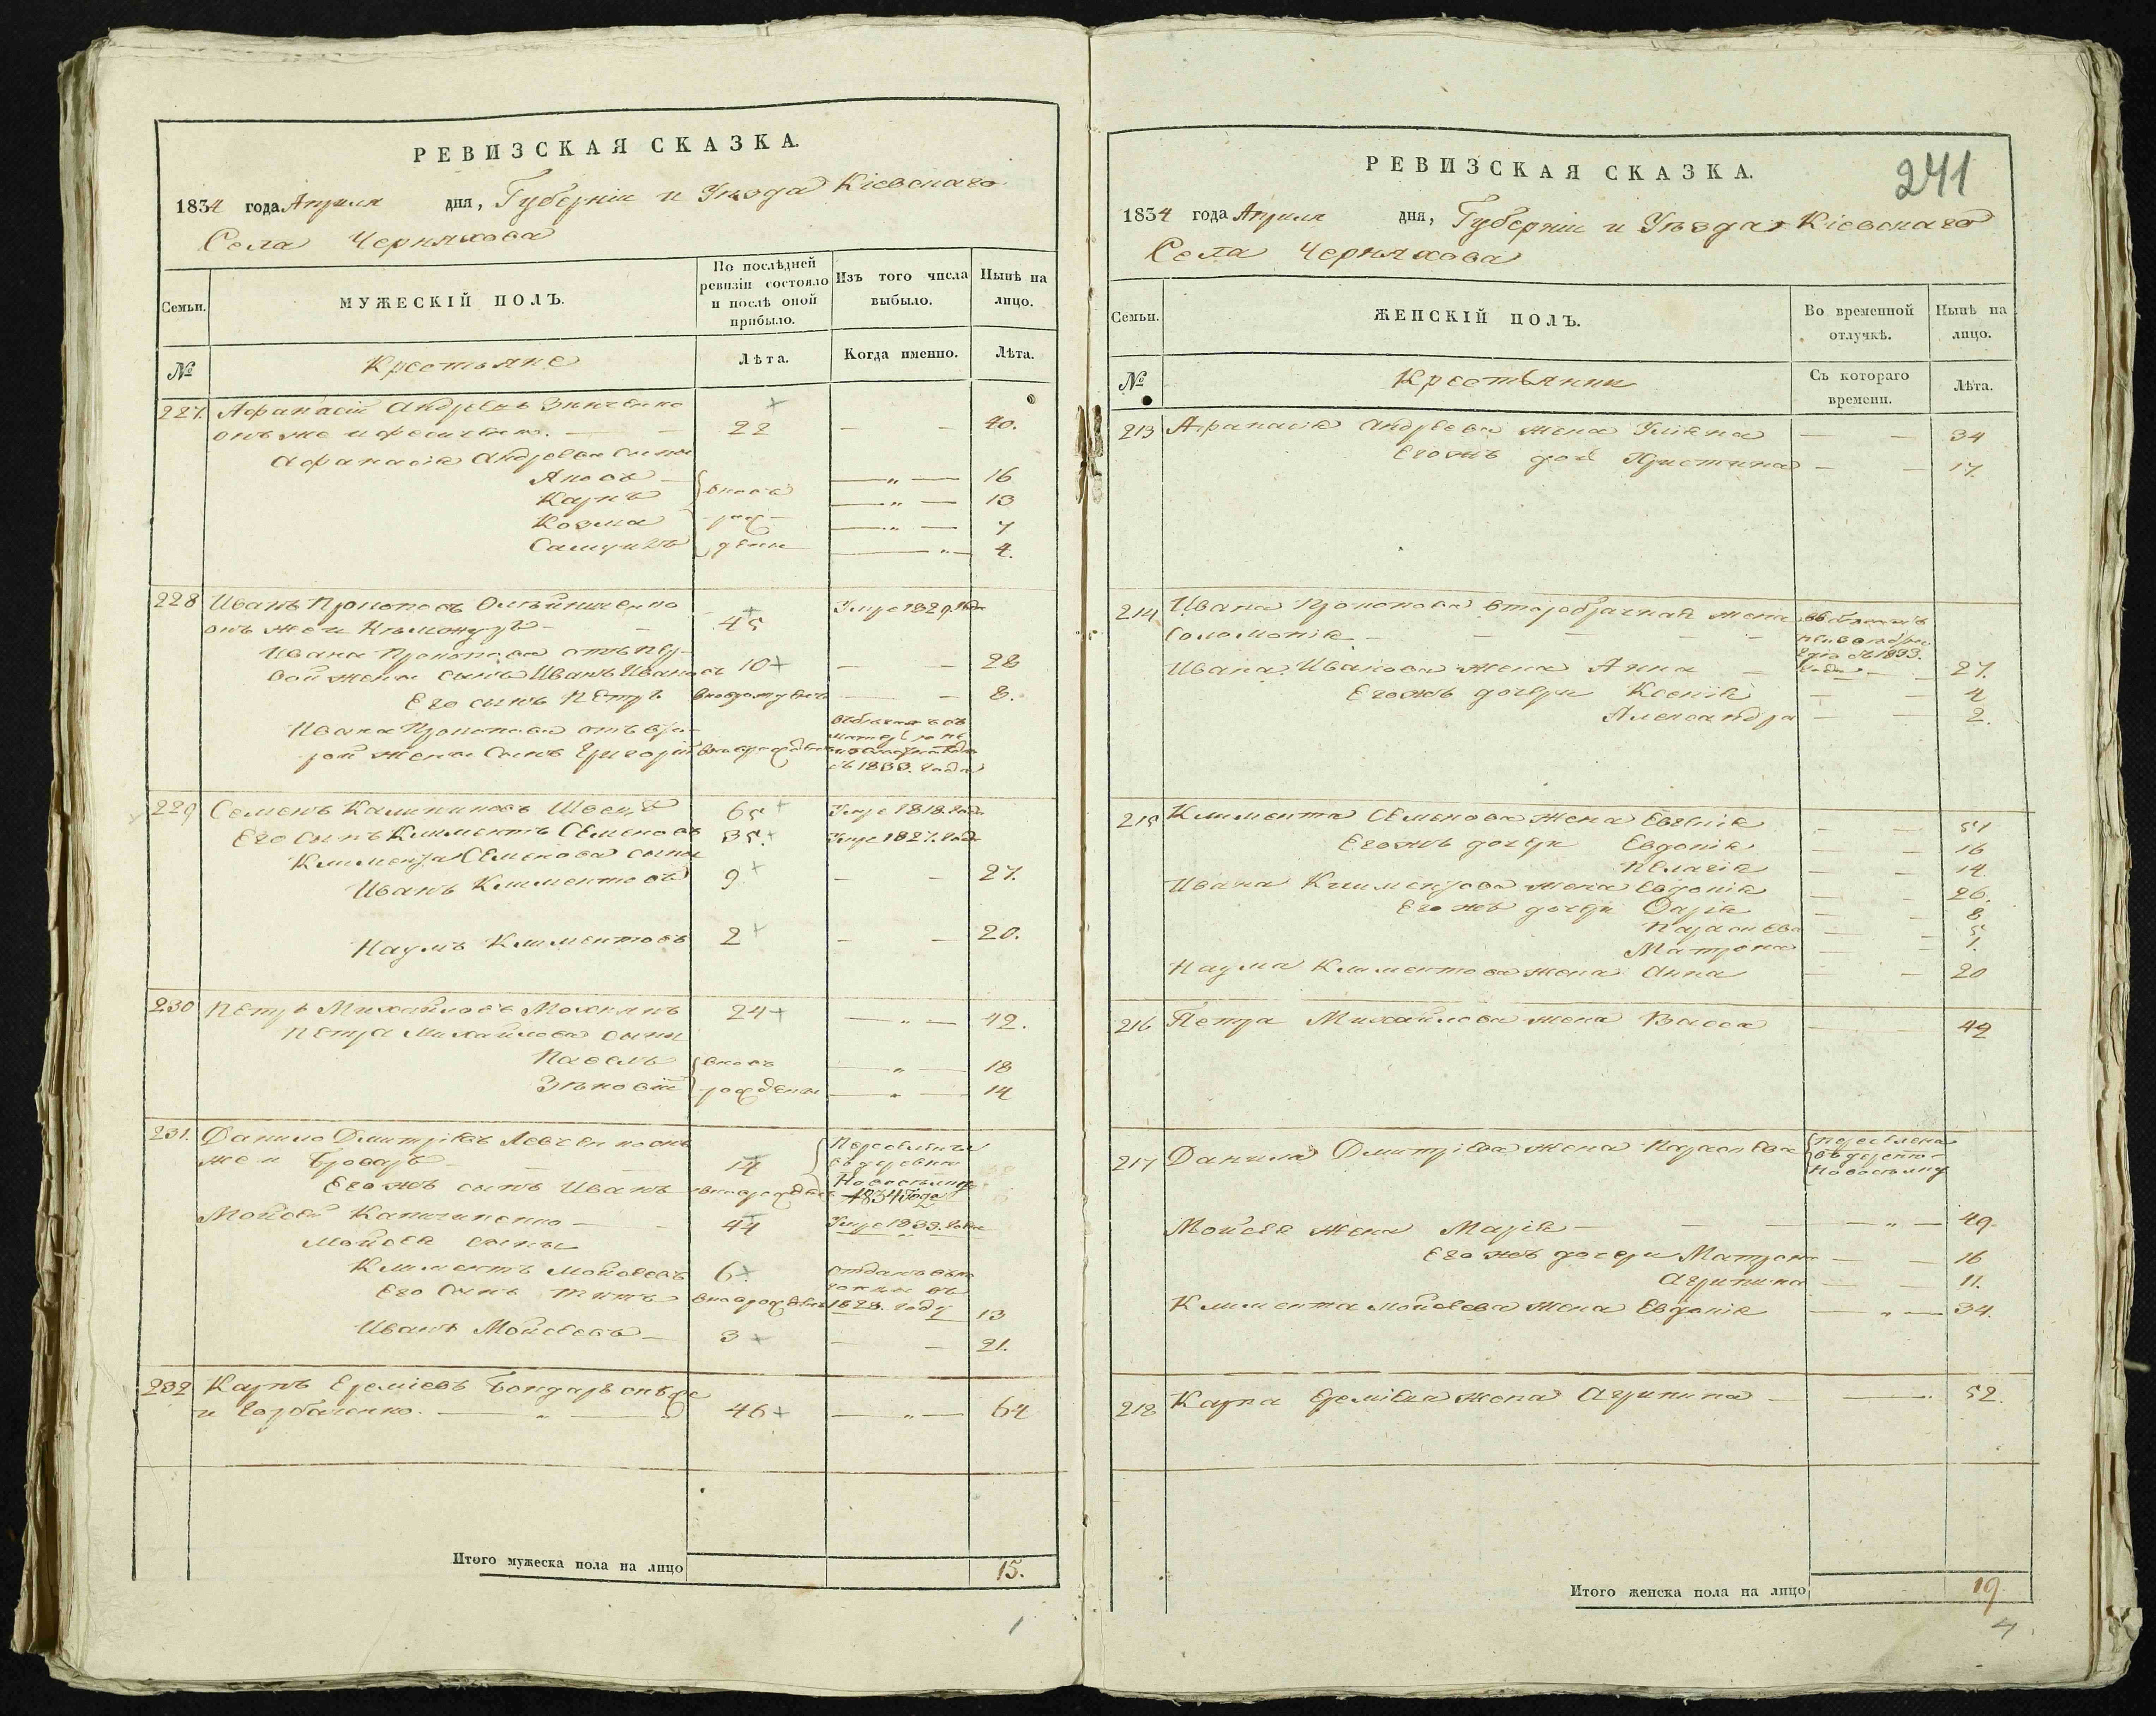 РЕВИЗСКАЯ СКАЗКА.
1834 года Апреля дня, Губерніи и Уѣзда Кіевскаго
Села Черняхова
Семьи.
МУЖЕСКІЙ ПОЛЪ.
По послѣдней ревизіи состояло и послѣ оной прибыло.
Изъ того числа выбыло.
Нынѣ на лицо.
№
Крестьяне
Лѣта.
Когда именно.
Лѣта.
227. Афанасій Андреевъ Зинченко
онъ же и 22 — — 40.
Афанасія Андреева сыны
Яковъ — " — 16
Карпъ вновь — " — 13
Козма — рож — — " — 7
Самуилъ дены — " — 4.
228 Иванъ Прокоповъ Олейниченко Умре 1829 года
онъ же и 45
Ивана Прокопова отъ пер-
вой жены сынъ Иванъ Ивановъ 10 — — 28
Его сынъ Петръ вноврожденъ — — 8.
Ивана Прокопова отъ вто-
рой жены сынъ Григорій вноврожденъ
съ 1833. года
229 Семенъ Калиниковъ Швецъ 65 Умре 1818. года
Его сынъ Климентъ Семеновъ 35. Умре 1827. года
Климента Семенова сыны
Иванъ Климентовъ 9 — — 27.
Наумъ Климентовъ 2 — — 20.
230 Петръ Михайловъ 24 — " — 42.
Петра Михайлова сыны
Павелъ вновь — " — 18
Зѣновій рождены — " — 14
231. Данило Дмитріевъ Левченко онъ
же и Броваръ 14 Переселенъ въ деревню
Его жъ сынъ Иванъ вноврожденъ 1834 года
Мойсей 44 Умре 1833. года
Мойсея сыны
Климентъ Мойсеевъ 6. отданъ въ
Его сынъ Титъ вноврожденъ 1828. году 13
Иванъ Мойсеевъ — 3 — — 21.
232 Карпъ Ереміевъ Бондарь онъ же
и Горбаченко. — " — 46 — " — 64
Итого мужеска пола на лицо 15.
1
241
РЕВИЗСКАЯ СКАЗКА.
1834 года Апреля дня, Губерніи и Уѣзда Кіевскаго
Села Черняхова
Семьи.
ЖЕНСКІЙ ПОЛЪ.
Во временной отлучкѣ.
Нынѣ на лицо.
№
Крестьянки
Съ котораго времени.
Лѣта.
213 Афанасія Андреева жена Уліяна — — 34
Его жъ дочь Христина — — 17.
214 Ивана Прокопова второбрачная жена
Соломонія — — — — съ 1833. года
Ивана Иванова жена Анна — — 27.
Его жъ дочери Ксенія — — 4
Александра — — 2.
215 Климента Семенова жена Евгенія — — 51
Его жъ дочери Евдокія — — 16
Пелагія — — 14
Ивана Климентова жена Евдокія — — 26.
Его жъ дочери Дарія — — 8
Параскева — — 5
Матрона — — 1.
Наума Климентова жена Анна — — 20
216 Петра Михайлова жена Васса — — 42
217 Данила Дмитріева жена Параскева переселена въ деревню
Мойсея жена Марія — — " — 49.
Его жъ дочери Матрона — — 16
Агрипина — — 11.
Климента Мойсеева жена Евдокія — " — 34.
218 Карпа Ереміева жена Агрипина — — 52.
Итого женска пола на лицо 19
4